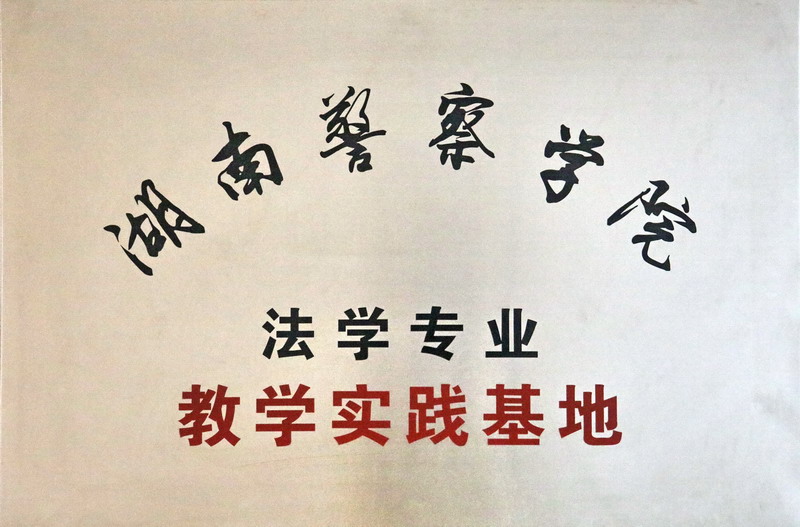 湖南警察学院
法学专业
教学实践基地